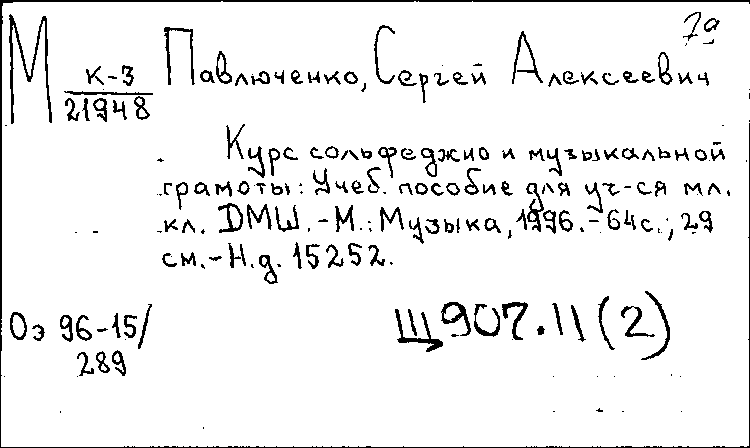 7а
М К-3 Павлюченко, Сергей Алексеевич
21948
Курс сольфеджио и музыкальной
грамоты: Учеб. пособие для уч-ся мл.
кл. ДМШ. - М.: Музыка, 1996. - 64с.; 29
см. - Н.д. 15252.
Оэ 96-15/
289
Щ907.11(2)